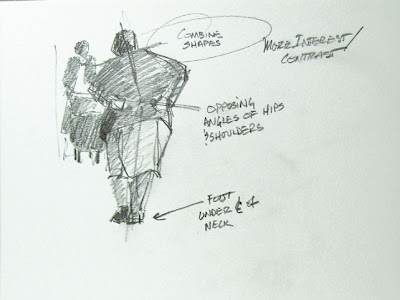 COMBINE
SHAPES
MORE INTEREST/
CONTRAST
OPPOSING
ANGLES OF HIPS
& SHOULDERS
FOOT
UNDER ℄ of
NECK